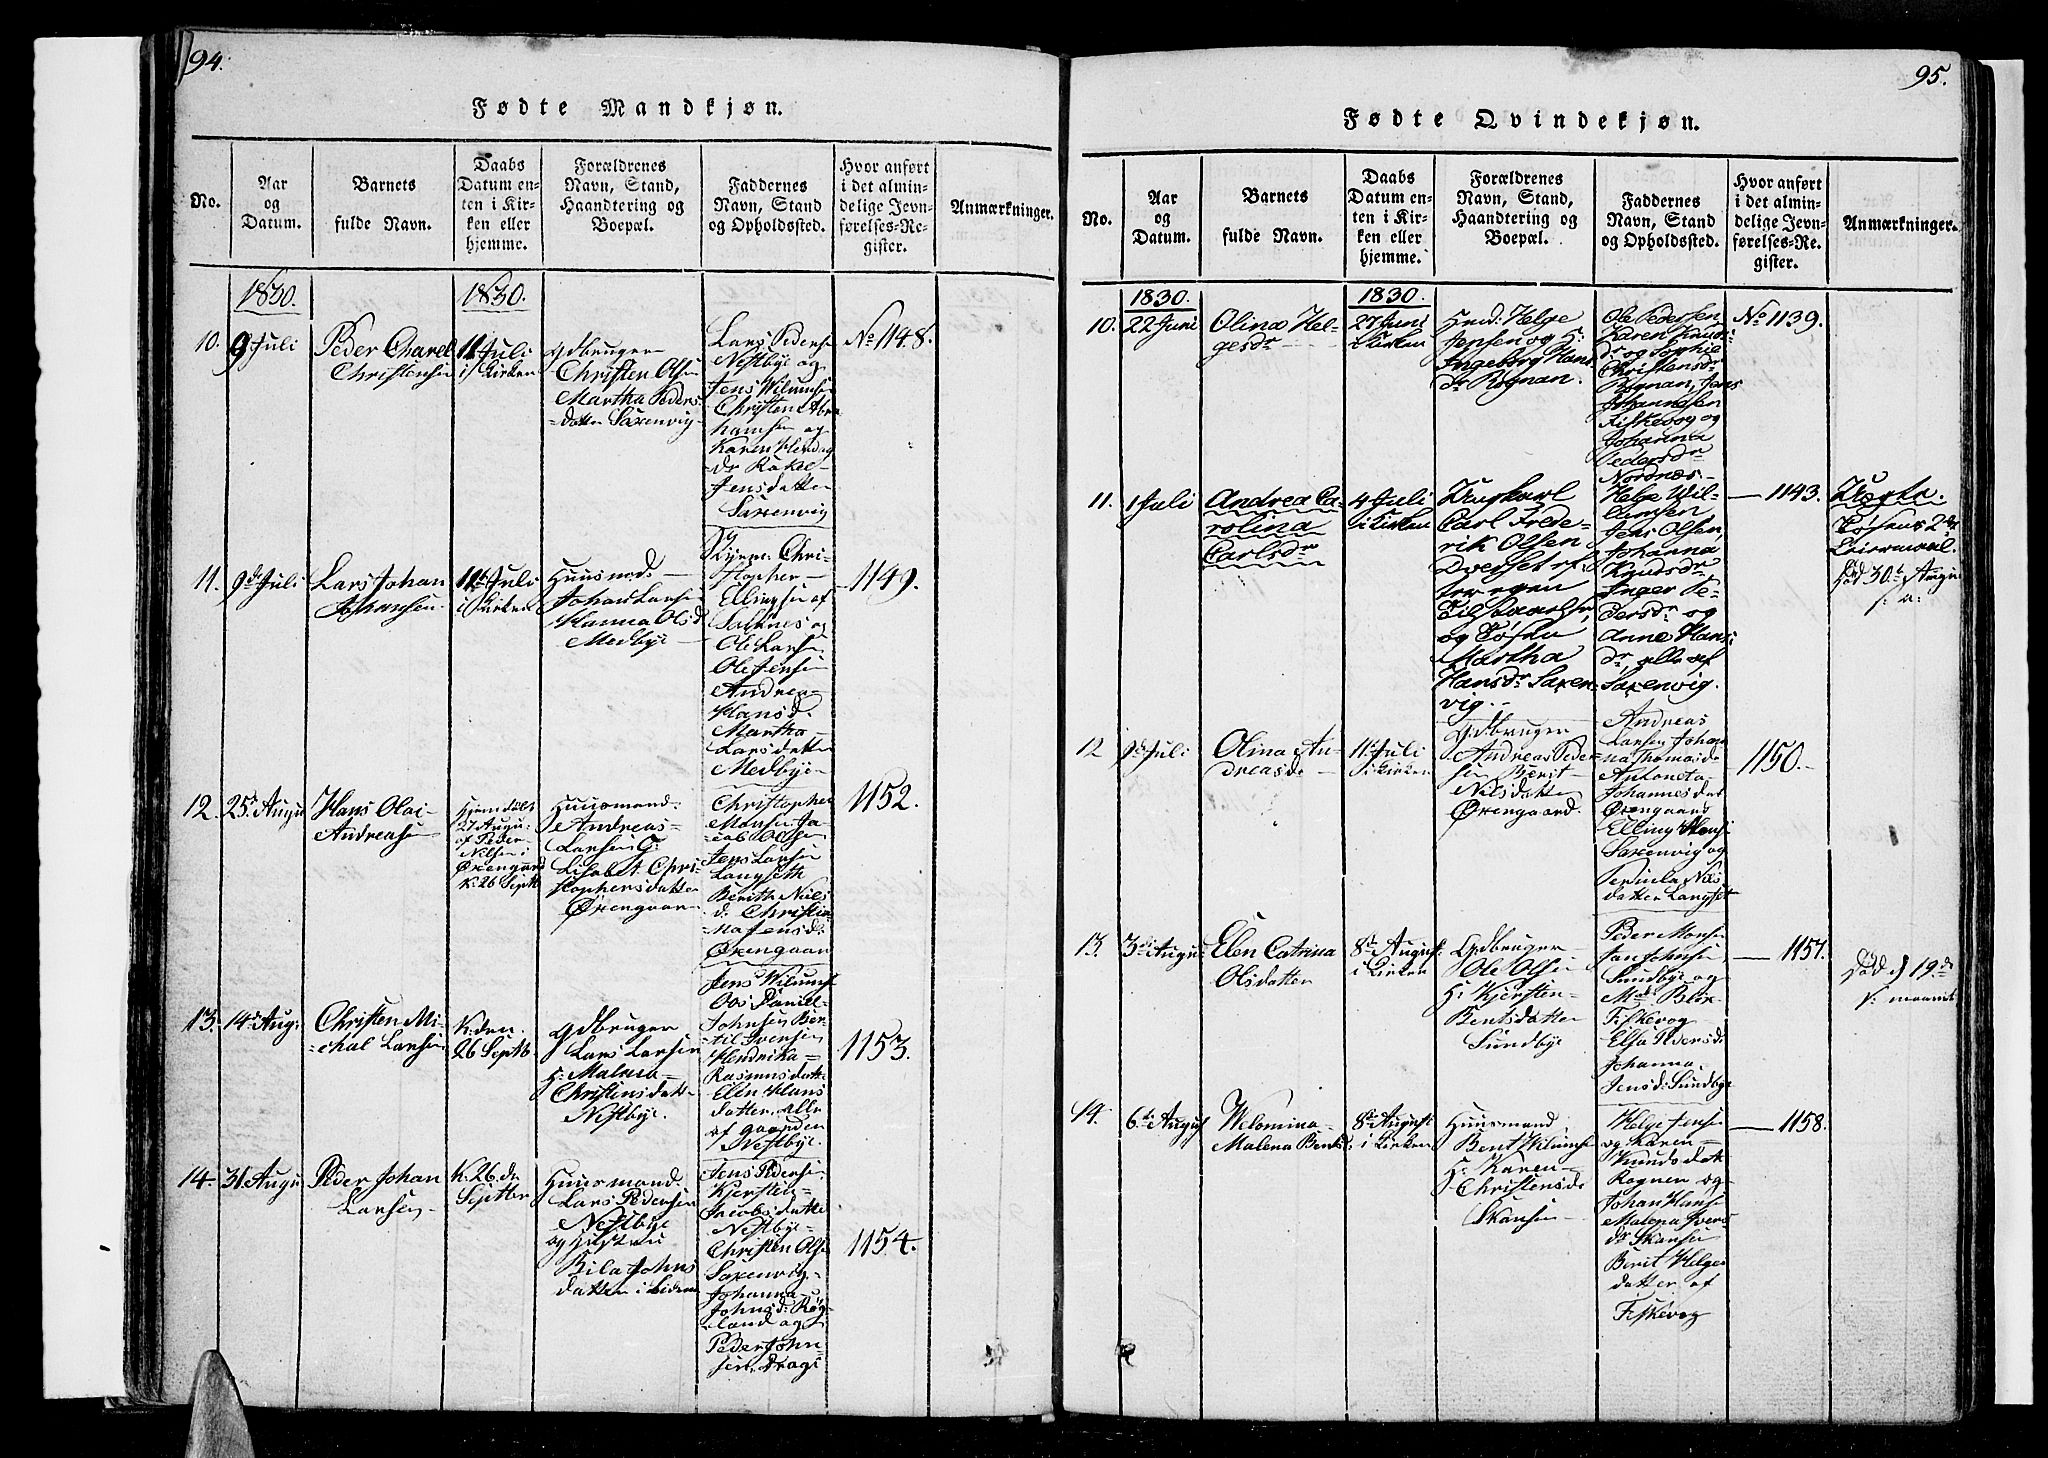 94.
Fødte Mandkjøn.
No.
Aar
og
Datum.
Barnets
fulde Navn.
Daabs
Datum en-
ten i Kir-
ken eller
hjemme.
Forældrenes
Navn, Stand,
Haandtering og
Boepæl.
Faddernes
Navn, Stand
og Opholdssted.
Hvor anført
i det almin-
delige Jevn-
førelses-Re-
gister.
Anmærkninger.
1830.
1830.
10.
9 Juli
Peder Charel
Christensen
11 Juli
i Kirken
Gdbruger
Christen Olsen
Martha Peders
datter Saxenvig
Lars Peders
Nestbye og
Jens Wilumsen
Christen Abra
hamsen og
Karen
dr Rakel
Jensdatter
Saxenvig
No 1148.
11.
9de Juli
Lars Johan
Johansen
11te Juli
i Kirken
Huusmd.
Johan Larsen
Hanna Olsd
Medbye
Chri-
stopher
Ellingsen af
Saxnes og
Ole Larsen
Ole Jensen
Andrea
Hansd.
Martha
Larsdatter
Medbye
1149.
12.
25 Augu
Hans Olai
Andreasen
Hjemdøbt
27 Augu:
af Peder
Nilsen i
Øxengaard
K: 26 Septb
Huusmand:
Andreas
Larsen G:
Lisabet Chri-
stophersdatter
Øxengaar
Christopher
Monsen Ja-
cob Olsen
Jens Larsen
Langseth
Berith Niels
d: Christia-
na Jensd:
Øxengaar
1152.
13.
14d Aug:
Christen Mi-
chal Larsen
K: den
26 Septb
Gdbruger
Lars Larsen
H: Malena
Christensdatt
Nestbye.
Jens Wilums
Daniel
Johnsen Ber-
til Svensen
Hendrika
Rasmusdatt
Elen Hans
datter alle
af gaarden
Nestbye.
1153.
14.
31 Augu
Peder Johan
Larsen
K: 26. de
Septbr
Huusmand.
Lars Pedersen
Nestbye
og Hustru
Bila Johns
datter i
Jens Pedersen
Kjersten
Jacobsdatte
Nestbye
Christen Olse
Saxenvig
Johanna
Johnsd: Røg-
land og
Peder John
sen
1154.
95.
Fødte Qvindekjøn.
No.
Aar
og
Datum.
Barnets
fulde Navn.
Daabs
Datum en-
ten i Kir-
ken eller
hjemme.
Forældrenes
Navn, Stand,
Haandtering og
Boepæl.
Faddernes
Navn, Stand
og Opholdssted.
Hvor anført
i det almin-
delige Jevn-
førelses-Re-
gister.
Anmærkninger.
1830.
1830.
10.
22 Juni
Olina Hel-
gesdr
27 Juni
i Kirken
Huusmd: Helge
Jensen og H:
Ingeborg Hans
dr Rognan.
Ole Pedersen
Karen Knuds
dr og Sophie
Christensdr
Rognan, Jens
Johannesen
Fiskevog og
Johanna
Pedersdr
Nordnæs.
No 1139.
11.
1 Juli
Andrea Ca-
rolina
Carlsdr
4 Juli
i Kirken
Ungkarl
Carl Frede-
rik Olsen
og Tøsen
Martha
Hansdr Saxen
vig.
Helge Wil-
lumsen
Jens Olsen,
Johanna
Knudsdr
Inger Pe-
dersdr og
Anne Hans
dr, alle af
Saxenvig.
1143.
Uægte.
Tøsens 2det
Leiermaal.
Død 30te Augu
s: a:
12
9de Juli
Olina An-
dreasd
11 Juli
i Kirken
Gdbruger
Andreas Peder
sen Berit
Nilsdatter
Øxengaard.
Andreas
Larsen Johan
na Thomasd
Antoneta
Johannesdat
Øxengaard
Elling Hans
Saxenvig og
Pernila Nils
datter Langset
1150.
13.
3de Augu
Elen Catrina
Olsdatter
8de August
i Kirken
Gdbruger
Ole Olsen
H: Kjersten
Bentsdatter
Sundbye
Peder Monsen
Jan Johnsen
Sundbye og
Mad: Blix
Fiskevog
Elsa Pedersd
Johanna
Jensd: Sundbye
1157.
Død d 19de
s: maaned
14.
6te Augus
Welomina
Malena Bents
8de August
i Kirken
Huusmand
Bent Wilums
H: Karen
Christensd
Skansen
Helge Jensen
og Karen
Knudsdatt
Rognen og
Johan Hansen
Malena Ivers
dr Skansen
Berit Helges
datter af
Fiskevog
1158.